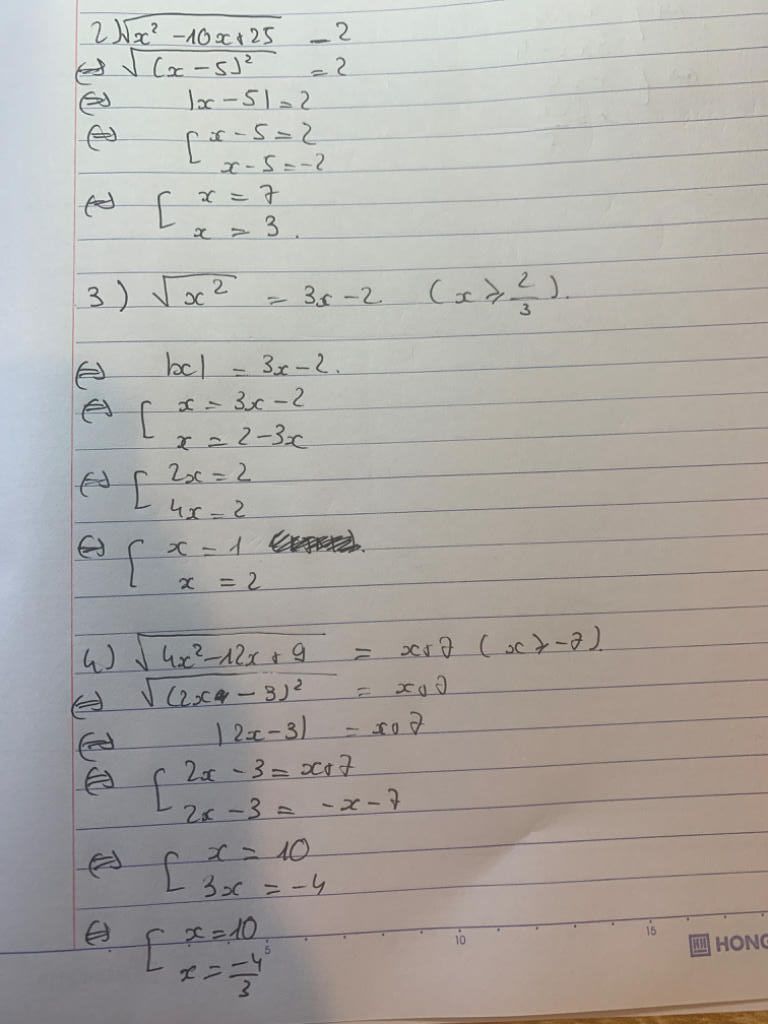 2) √(x² - 10x + 25) = 2
⇔ √((x - 5)²) = 2
⇔ |x - 5| = 2
⇔ [ x - 5 = 2
x - 5 = -2
⇔ [ x = 7
x = 3.
3) √(x²) = 3x - 2 (x ⩾ 2/3).
⇔ |x| = 3x - 2.
⇔ [ x = 3x - 2
x = 2 - 3x
⇔ [ 2x = 2
4x = 2
⇔ [ x = 1
x = 2
4) √(4x² - 12x + 9) = x + 7 (x ⩾ -7).
⇔ √((2x - 3)²) = x + 7
⇔ |2x - 3| = x + 7
⇔ [ 2x - 3 = x + 7
2x - 3 = -x - 7
⇔ [ x = 10
3x = -4
⇔ [ x = 10
x = -4/3
5 10 15 HH HONG